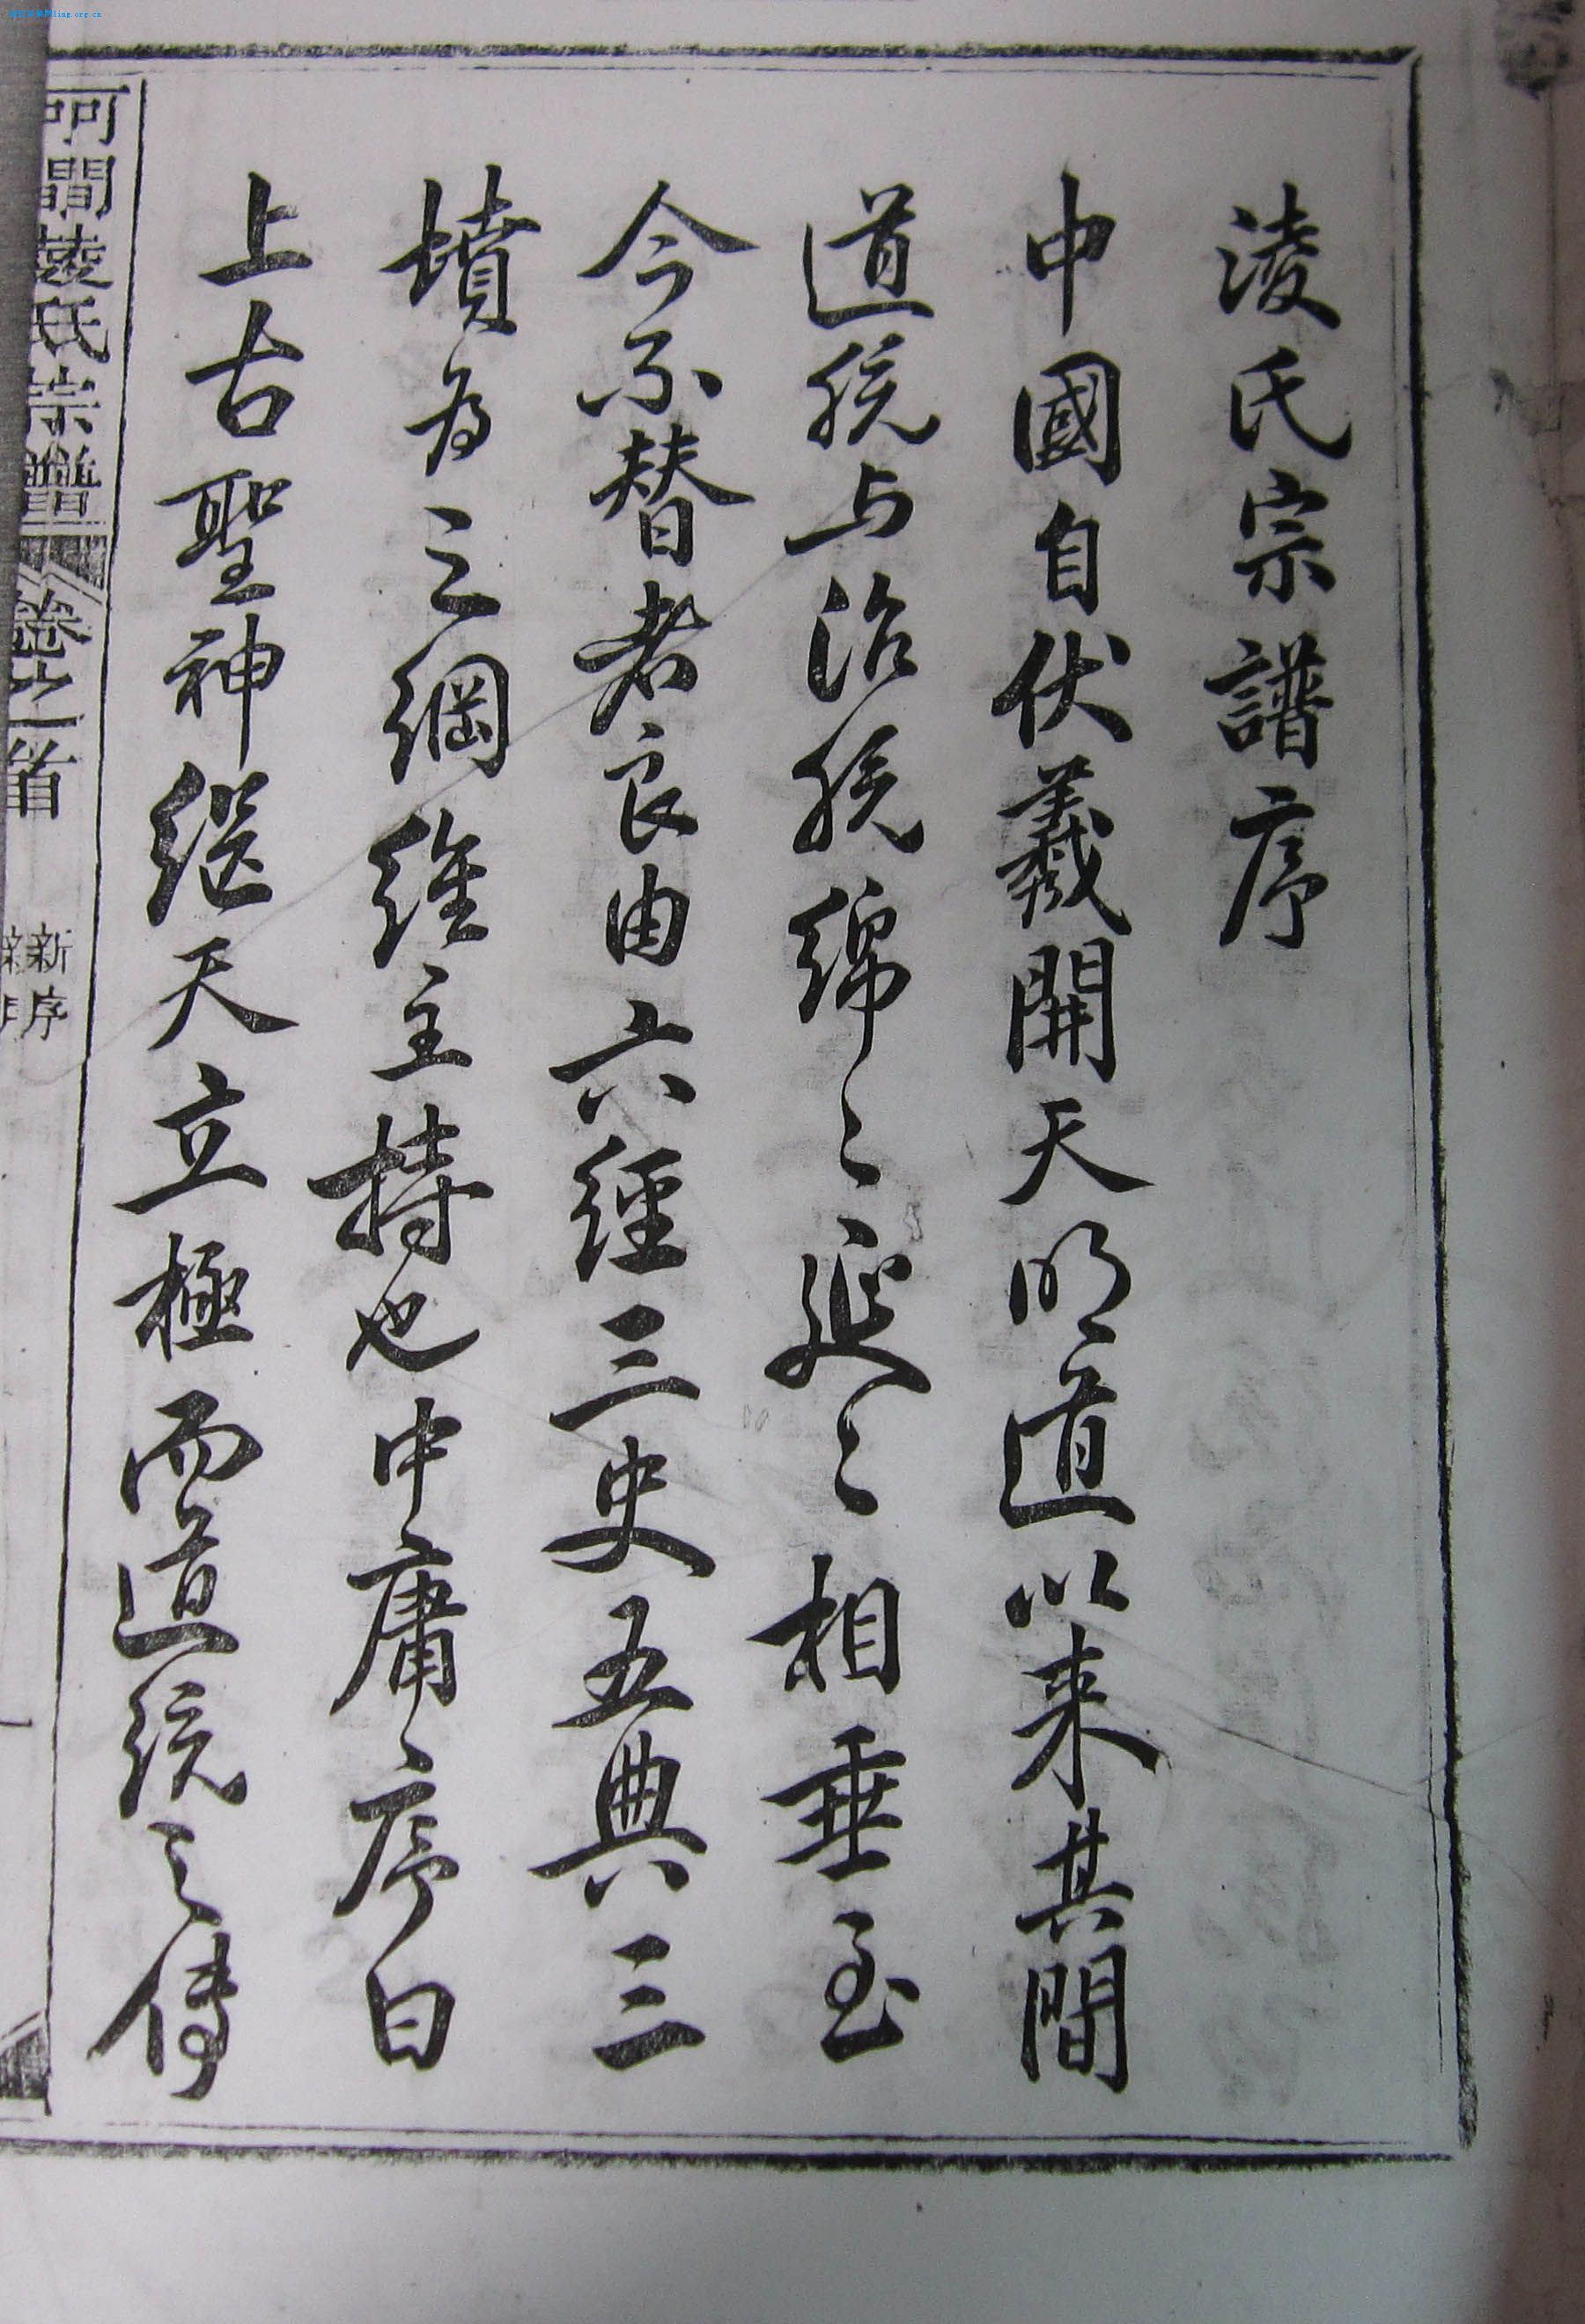 淩氏宗譜序
中國自伏羲開天明道以来其間
道統与治統綿〻延〻相垂至
今不替者良由六經三史五典三
墳為之綱維主持也中庸序曰
上古聖神继天立極而道統之傳
河間凌氏宗譜 卷之首 新序 一